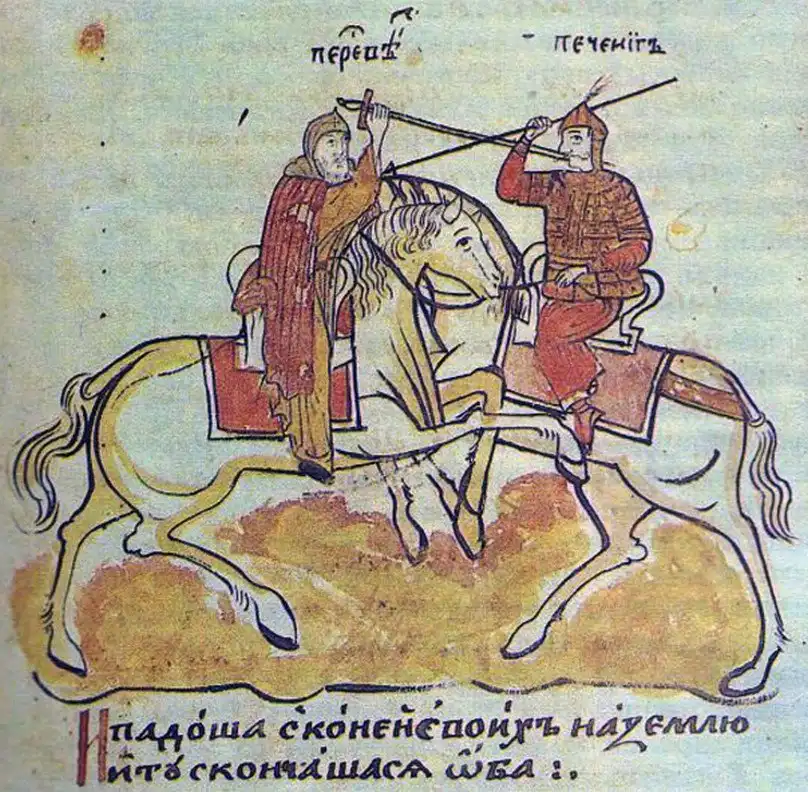 пересвѣт печенігъ
И падо́ша с коне́й свои́хъ на́ землю
и҆ тꙋ сконча́шася ѡ҆́ба :.